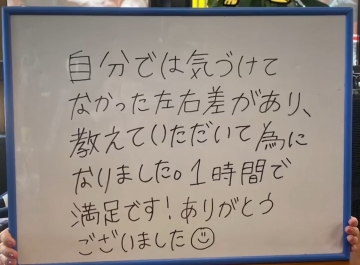 自分では気づけて
なかった左右差があり、
教えていただいて為に
なりました。1時間で
満足です！ありがとう
ございました☺